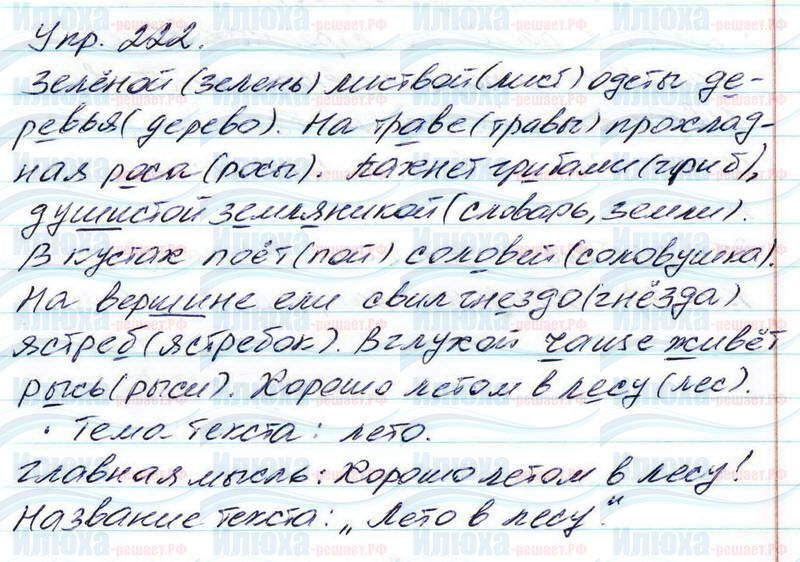 Упр. 222.
Зелёной (зелень) листвой (лист) одеты де-
ревья (дерево). На траве (травы) прохлад-
ная роса (росы). Пахнет грибами (гриб),
душистой земляникой (словарь, земли).
В кустах поёт (пой) соловей (соловушка).
На вершине ели свил гнездо (гнёзда)
ястреб (ястребок). В глухой чаще живёт
рысь (рыси). Хорошо летом в лесу (лес).
· Тема текста: лето.
Главная мысль: Хорошо летом в лесу!
Название текста: „Лето в лесу".
Илюха-решает.РФ